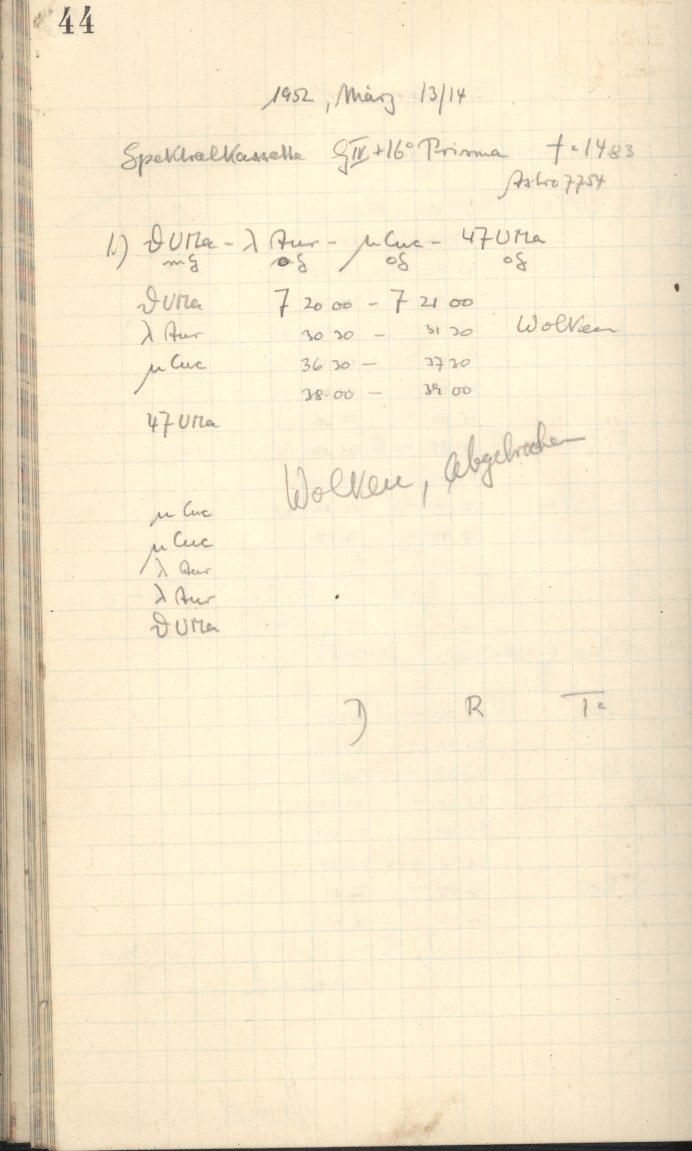 44
1952, März 13/14
Spektralkassette GIV+16° Prisma f = 1483
Astro 7754
1.) ϑ UMa - λ Aur - μ Cnc - 47 UMa
mG oG oG oG
ϑ UMa 7 20 00 - 7 21 00
λ Aur 30 30 - 31 30 Wolken
μ Cnc 36 30 - 37 30
38 00 - 39 00
47 UMa
Wolken, abgebrochen
μ Cnc
μ Cnc
λ Aur
λ Aur
ϑ UMa
D R T